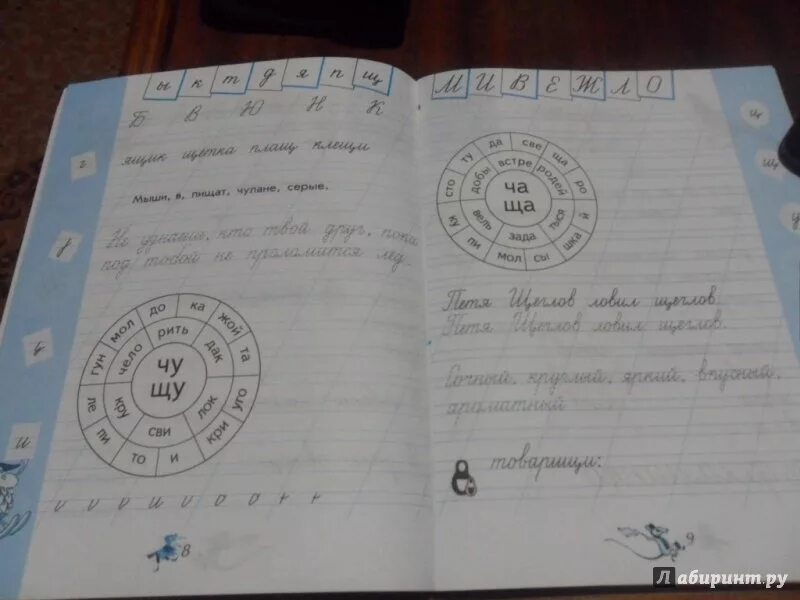 ы к т д я п щ
Б В Ю Н К
ящик щетка плащ клещи
Мыши, в, пищат, чулане, серые.
Не узнаешь, кто твой друг, пока
под тобой не проломится лед.
чу
щу
рить
дак
лок
сви
кру
чело
до
ка
жой
та
уго
кри
и
то
пи
ле
гун
мол
8
М И В Е Ж Л О
ча
ща
встре
родей
ться
зада
вель
добы
да
све
ща
ро
й
шка
сы
мол
пи
ку
сто
ту
Петя Щеглов ловил щеглов.
Петя Щеглов ловил щеглов.
Сочный, круглый, яркий, вкусный,
ароматный
товарищи:
9
Лабиринт.ру